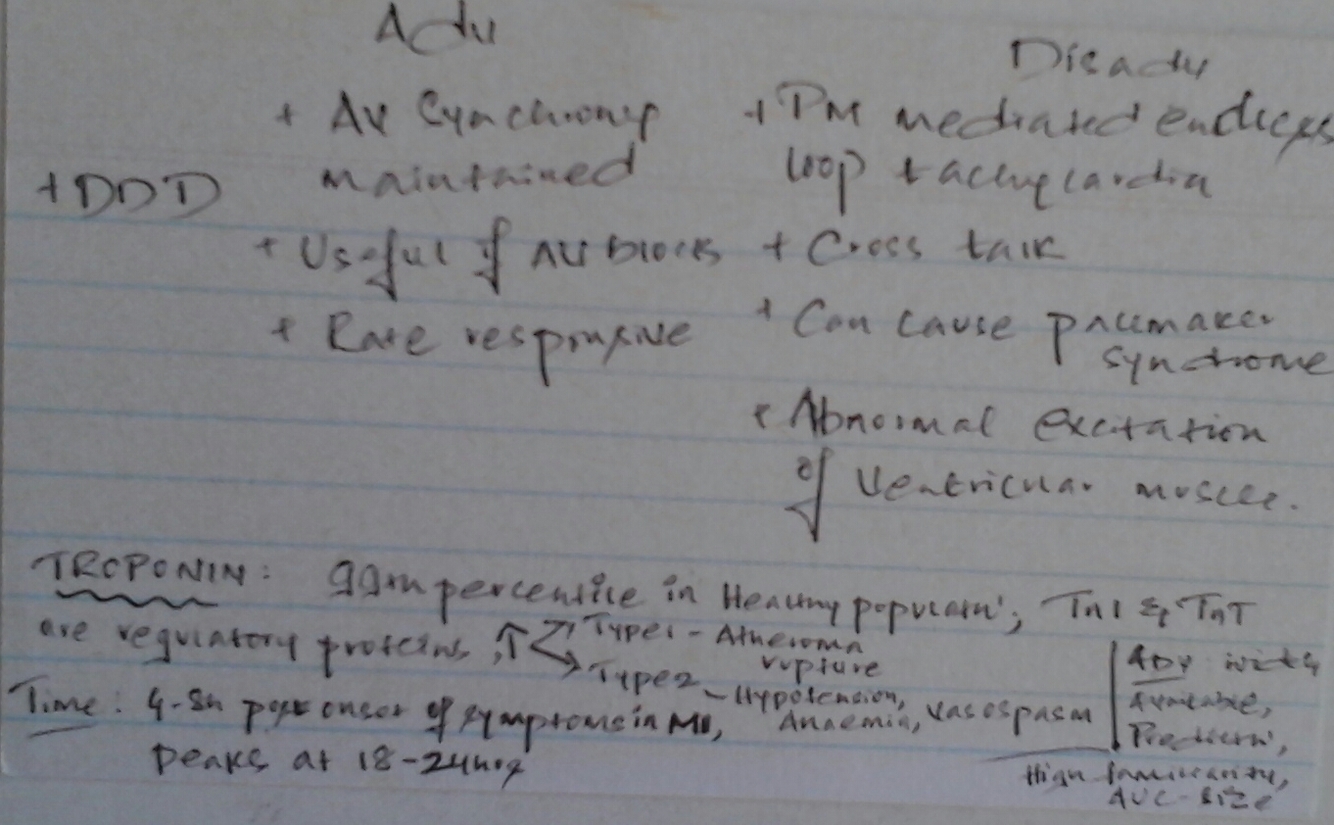 Adv
Disadv
+ AV Synchrony
maintained
+ PM mediated endless
loop tachycardia
+ DDD
+ Useful if AV block
+ Cross talk
+ Rate responsive
+ Can cause pacemaker
syndrome
+ Abnormal excitation
of Ventricular muscle.
TROPONIN: 99th percentile in Healthy populatn; TnI & TnT
are regulatory proteins, ↑
Type1 - Atheroma
rupture
Type2 - Hypotension,
Anaemia, Vasospasm
Time: 4-8h post onset of symptoms in MI,
Peaks at 18-24hrs
ADV widely
Available,
Predictn,
High familiarity,
AUC - Size